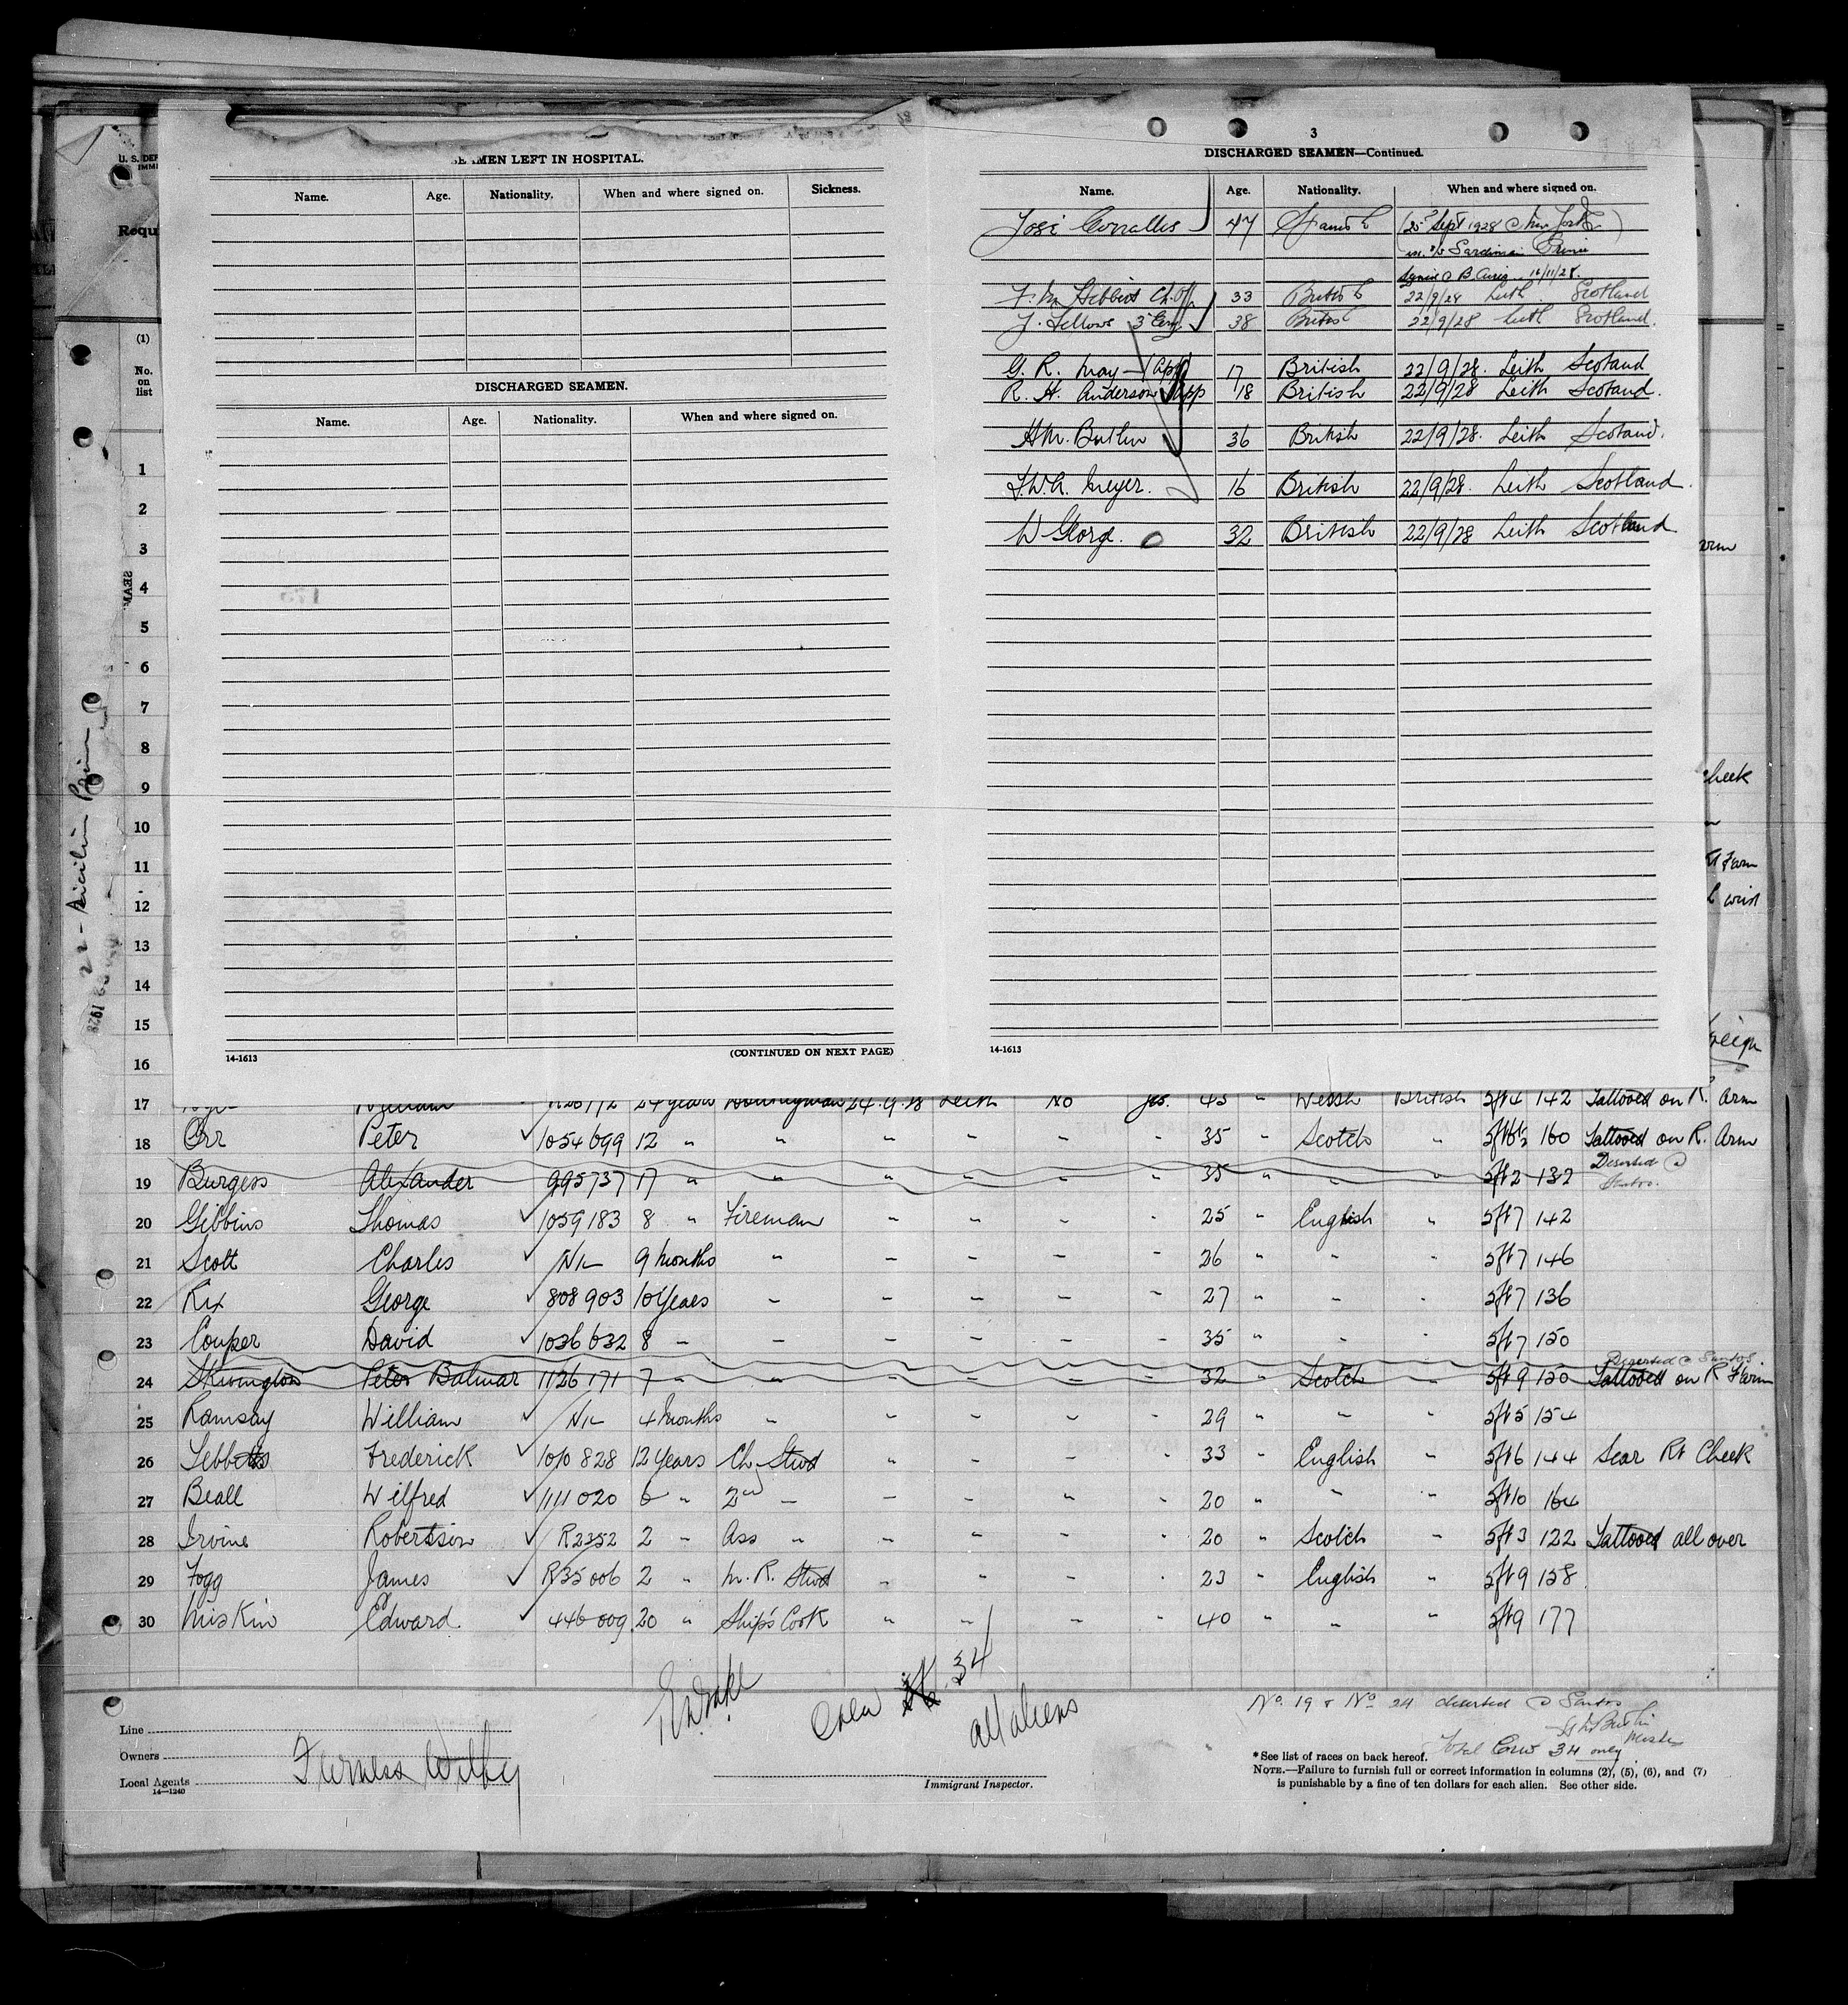 U. S. DEP
IMMI
Requ
SEAMEN LEFT IN HOSPITAL.
Name. Age. Nationality. When and where signed on. Sickness.
DISCHARGED SEAMEN.
Name. Age. Nationality. When and where signed on.
14-1613 (CONTINUED ON NEXT PAGE)
3
DISCHARGED SEAMEN—Continued.
Name. Age. Nationality. When and where signed on.
José Corralles 47 Spanish (25 Sept 1928 @ New York)
Sardinian Prince
signed @ B. Aires 16/11/28.
Ch. Off 33 British 22/9/28 Leith Scotland
J. Fellows 3 Eng 38 British 22/9/28 Leith Scotland.
G. R. May (App) 17 British 22/9/28. Leith Scotand
R. H. Anderson App 18 British 22/9/28 Leith Scotand.
H.M. Butlin 36 British 22/9/28. Leith Scotand.
F.W.A. Meyer. 16 British 22/9/28. Leith Scotland.
W George. 32 British 22/9/28 Leith Scotland
14-1613
(1)
No. on list
SEAM
1
2
3 arm
4
5
6
7
8
9 cheek
10
11 Farm
12 wrist
13
14
15
16
22 - Sicilian Prince
1928
17 William R26172 24 years Donkeyman 24.9.28 Leith No yes. 45 " Welsh British 5ft4 142 Tattooed on R. Arm
18 Orr Peter 1054699 12 " " " " " " 35 " Scotch " 5ft6½ 160 Tattooed on R. Arm
19 Burgess Alexander 995737 17 " " " " " " 35 " " " 5ft2 132 Deserted @ Santos.
20 Gibbins Thomas 1059183 8 " Fireman " " " " 25 " English " 5ft7 142
21 Scott Charles Nil 9 months " " " " " 26 " " " 5ft7 146
22 Rix George 808903 10 Years " " " " " 27 " " " 5ft7 136
23 Couper David 1036632 8 " " " " " " 35 " " " 5ft7 150
24 Skivington Peter Balmar 1126171 7 " " " " " " 32 " Scotch " 5ft9 150 Deserted @ Santos Tattooed on R Farm
25 Ramsay William Nil 4 months " " " " " 29 " " " 5ft5 154
26 Tebbetts Frederick 1010828 12 Years Ch. Stwd " " " " 33 " English " 5ft6 144 Scar Rt Cheek
27 Beall Wilfred 1111020 6 " 2nd " " " " " 20 " " " 5ft10 164
28 Irvine Robertson R2352 2 " Ass " " " " " 20 " Scotch " 5ft3 122 Tattooed all over
29 Fogg James R35006 2 " M. R. Stwd " " " " 23 " English " 5ft9 158
30 Miskin Edward. 446009 20 " Ship's Cook " " " " 40 " " " 5ft9 177
Crew 34
all aliens
No. 19 & No 24 deserted @ Santos
H M Butlin
Master
Total Crew 34 only
Line
Owners
Local Agents Furness Withy
14—1240
Immigrant Inspector.
*See list of races on back hereof.
NOTE.—Failure to furnish full or correct information in columns (2), (5), (6), and (7)
is punishable by a fine of ten dollars for each alien. See other side.